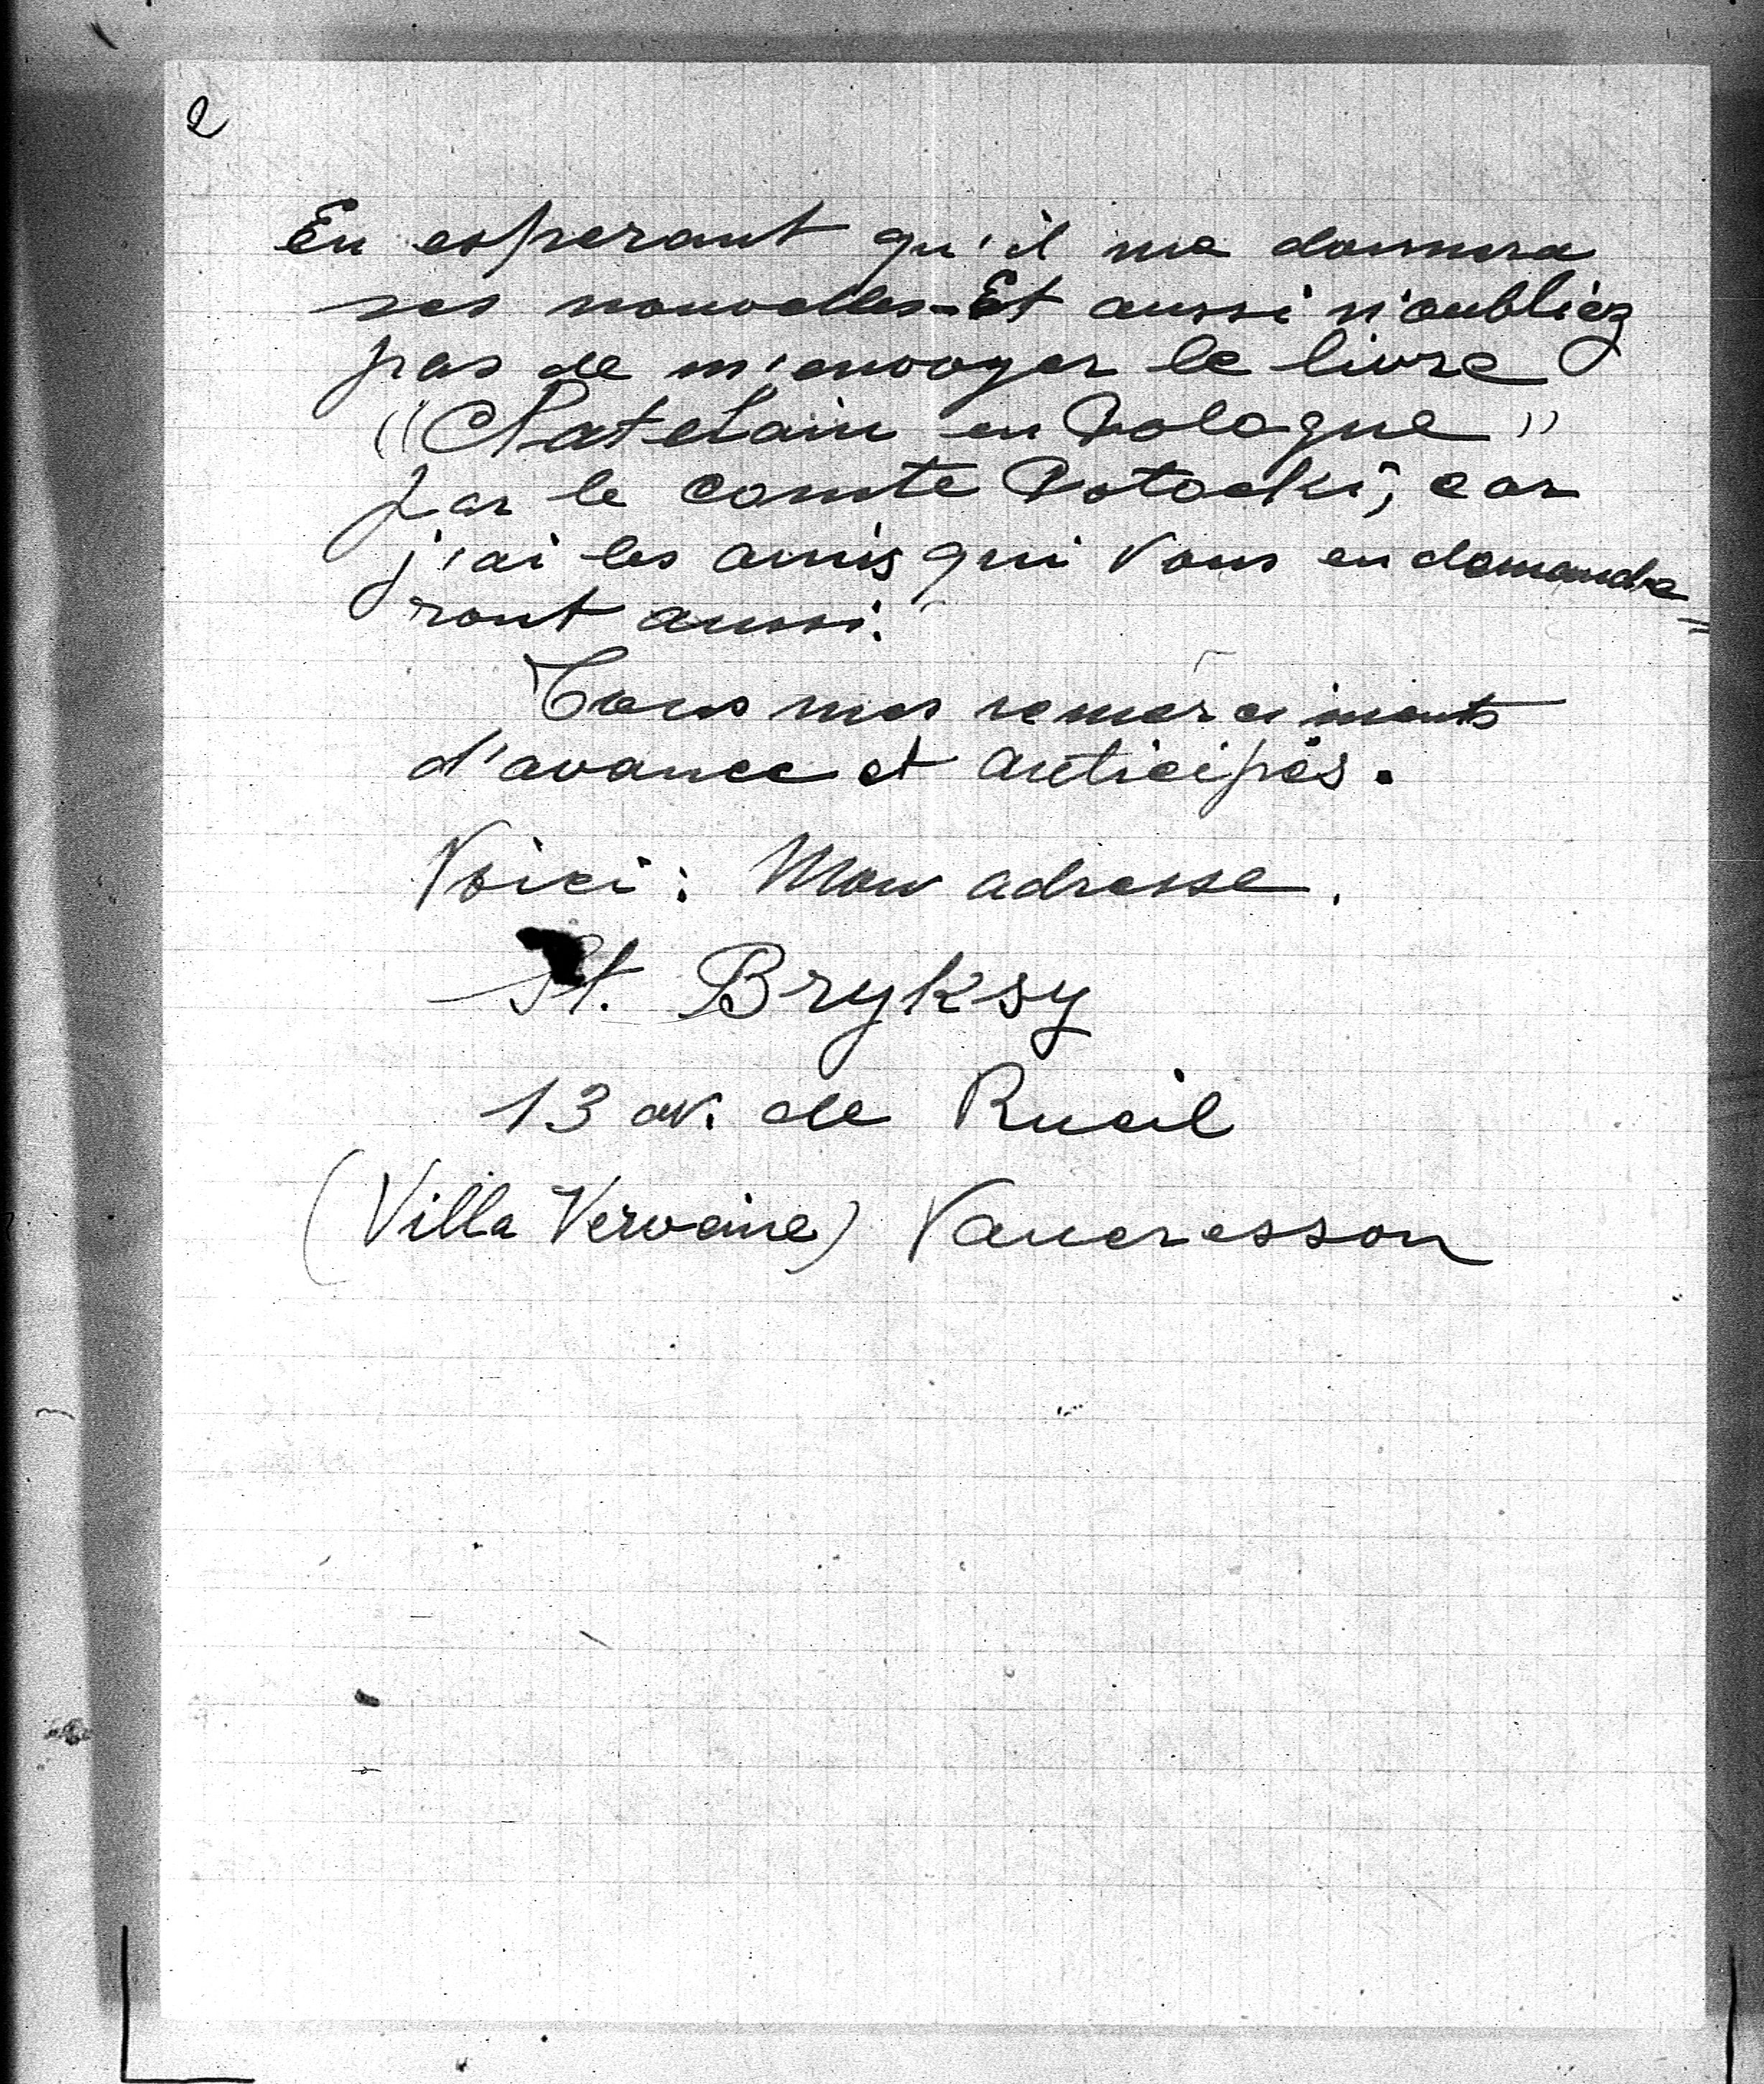 2
En esperant qu'il me donnera
ses nouvelles - Et aussi n'oubliez
pas de m'envoyer le livre
"Chatelain en Pologne"
par le comte Potocki, car
j'ai les amis qui vous en demande=
ront aussi.
Tous mes remerciments
d'avance et anticipés.
Voici : Mon adresse.
St. Bryksy
13 av. de Rueil
(Villa Verveine) Vaucresson